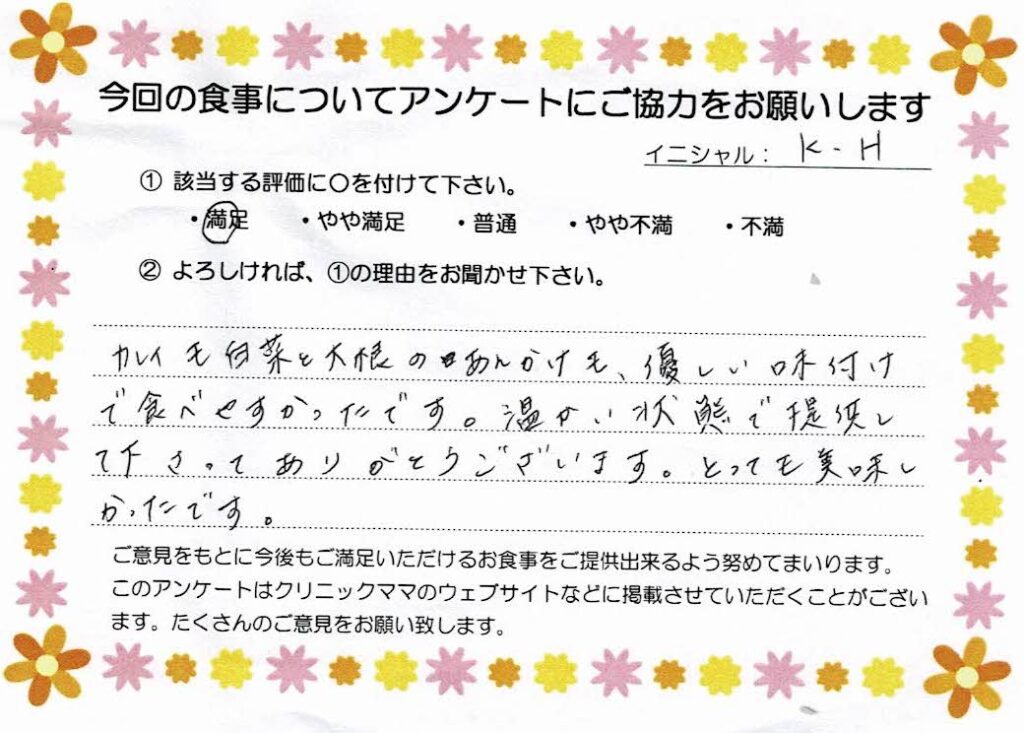 今回の食事についてアンケートにご協力をお願いします
イニシャル： K-H
① 該当する評価に〇を付けて下さい。
・満足 ・やや満足 ・普通 ・やや不満 ・不満
② よろしければ、①の理由をお聞かせ下さい。
カレイも白菜と大根のあんかけも、優しい味付け
で食べやすかったです。温かい状態で提供し
て下さってありがとうございます。とっても美味し
かったです。
ご意見をもとに今後もご満足いただけるお食事をご提供出来るよう努めてまいります。
このアンケートはクリニックママのウェブサイトなどに掲載させていただくことがござい
ます。たくさんのご意見をお願い致します。